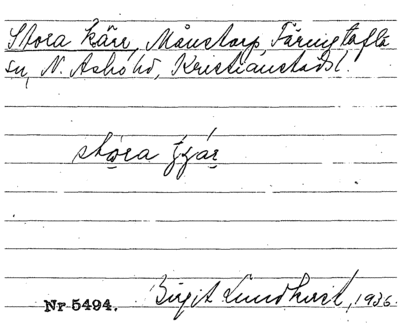 Stora kärr, Månstorp, Färingtofta
sn, N. Åsbo hd, Kristianstads l.
stora tjär
Nr 5494. Birgit Lundkvist, 1936.